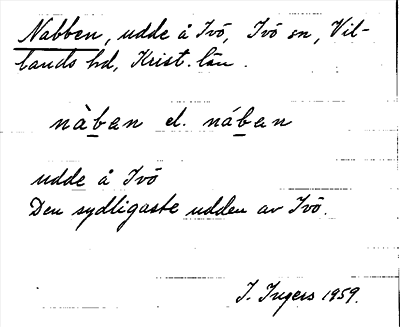 Nabben, udde å Ivö, Ivö sn, Vil-
lands hd, Krist. län.
nàban el. nában
udde å Ivö
Den sydligaste udden av Ivö.
I. Ingers 1959.